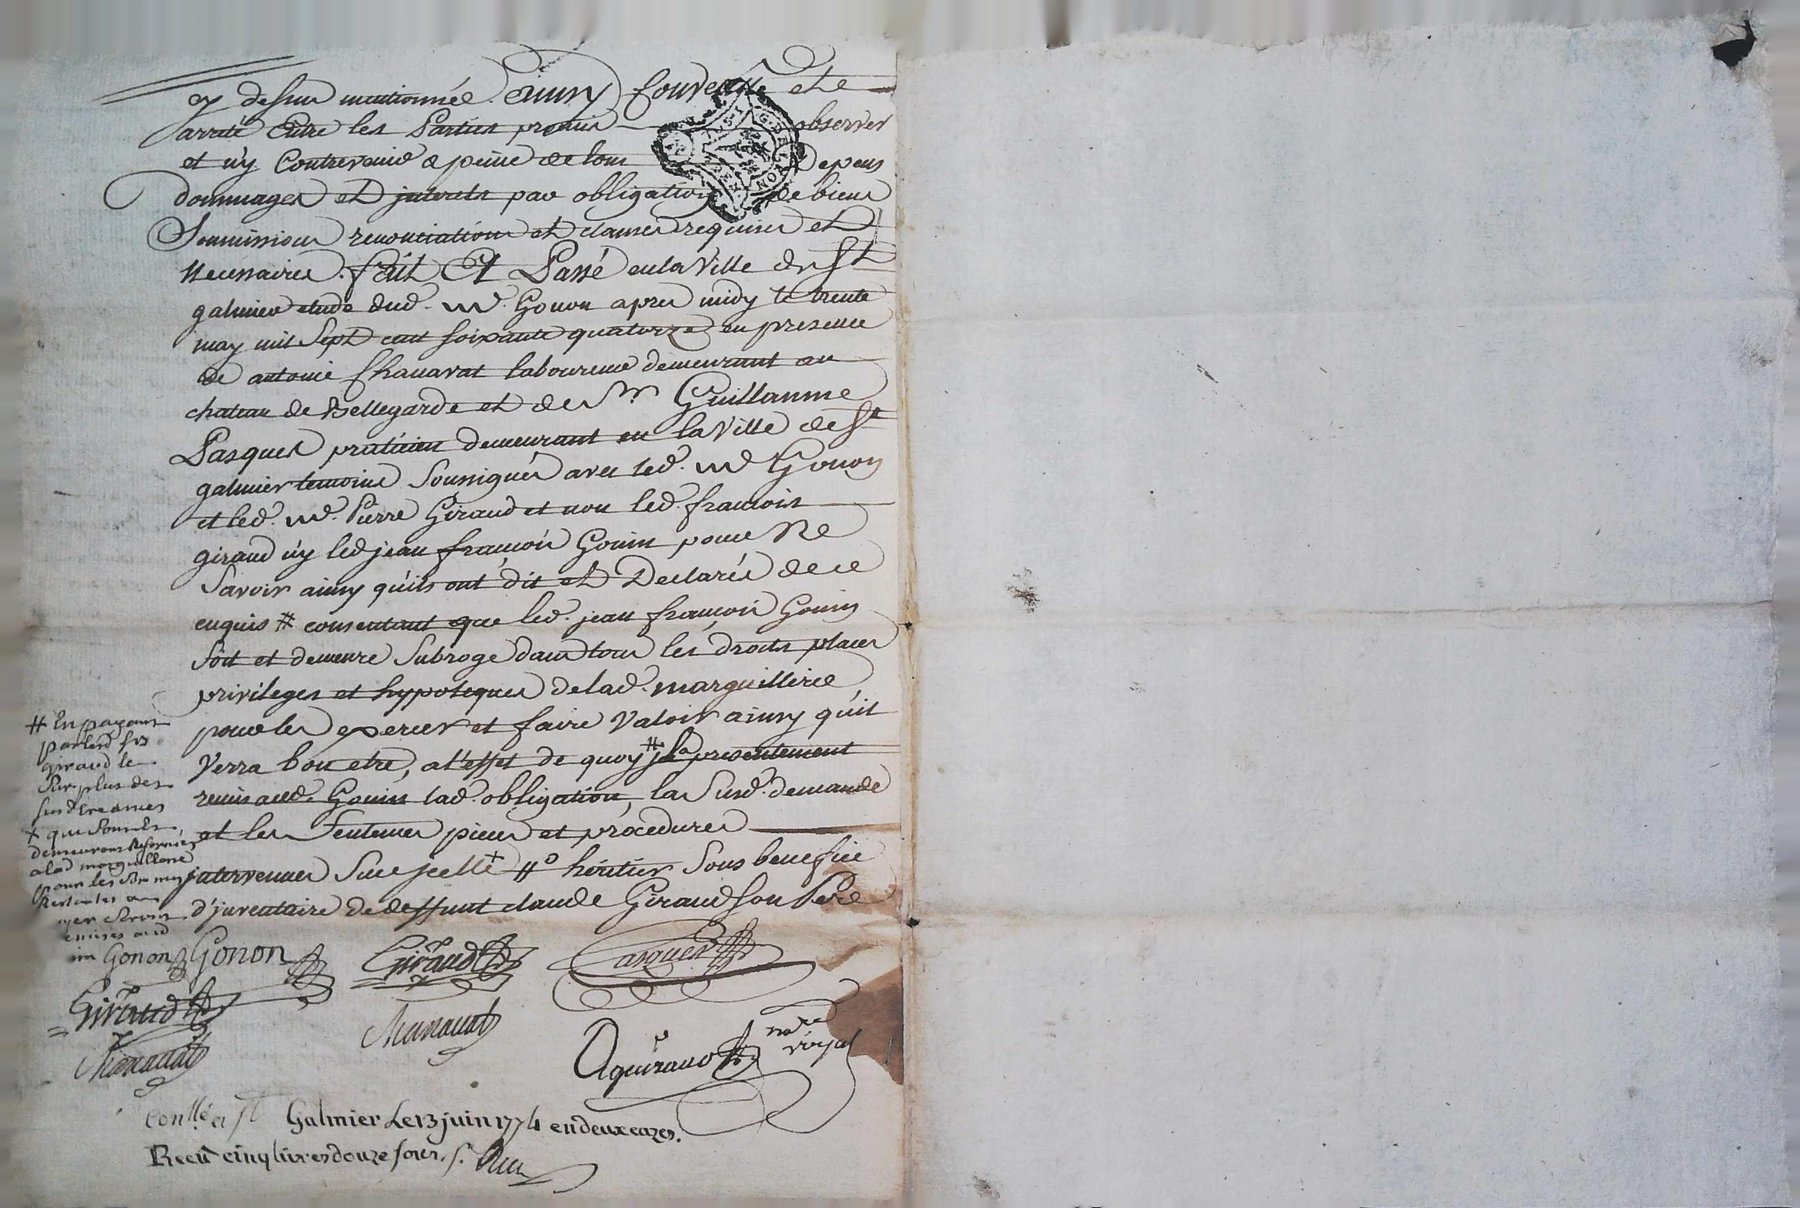 cy dessus mentionnée. Ainsy convenu et
arrete Entre les Parties promis observer
et n'y Contrevenir a peine de tous Depens
dommages et interets par obligation de biens
Soumissions renonciations et clauses requises et
necessaires. fait Et Passé en la Ville de St
galmier etude dud. me. Gonon apres midy le trente
may mil Sept cent soixante quatorze en presence
de antoine Chanavat laboureur demeurant au
chateau de Bellegarde et de Sr. Guillaume
Pasquet praticien demeurant en la Ville de St
galmier temoins Soussignés avec led. me Gonon
et led. me. Pierre Giraud et non led. francois
giraud n'y led jean françois Gouin pour Ne
Savoir ainsy quils ont dit et Declarés de ce
enquis # consentant que led. jean françois Gouin
Soit et demeure Subrogé dans tous les droits places
privileges et hypoteques de lad. marguillerie
pour les exercer et faire Valoir ainsy qu'il
Verra bon etre, a l'effet de quoy # presentement
remis aud. Gouin lad. obligation, la Susd. demande
et les Sentences pieces et procedures
intervenues Sur jcelle + # heritier Sous benefice
d'inventaire de deffunt claude Giraud son Pere
# En payant
par led frs
giraud le
Surplus des
susd creances
+ qui
demeurent Reservés
a lad marguillerie
pour les
Restantes
Gonon Gonon Giraud Pasquet
Giraud Chanavat
Chanavat
nore
royal
Conllé a St Galmier Le 13 juin 1774 en deux cazes.
Reçu cinq livres douze sous.